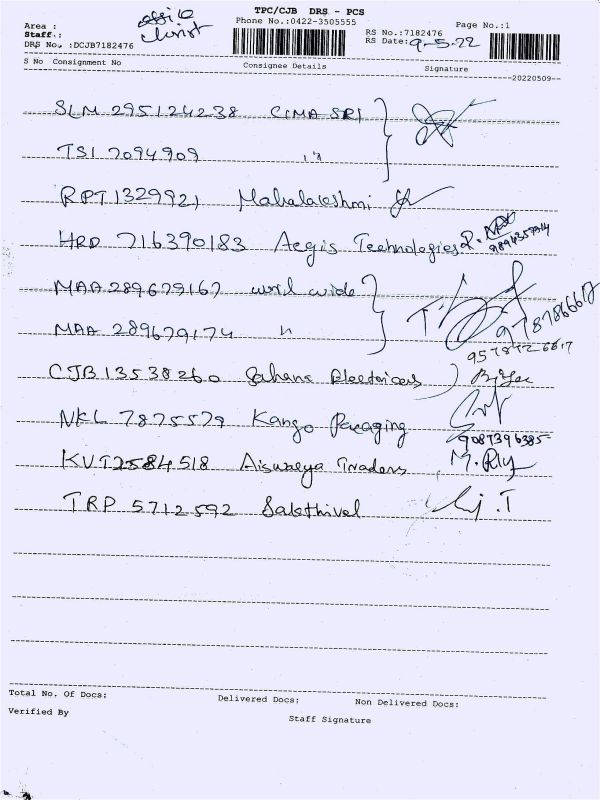 TPC/CJB DRS - PCS
Area : office Phone No.:0422-3505555 Page No.:1
Staff.: christ RS No.:7182476
DRS No. :DCJB7182476 RS Date: 9-5-22
S No Consignment No Consignee Details Signature
20220509
SLM 295124238 CIMA SRI
TSI 7094909 "
RPT 1329921 Mahalakshmi
HRD 716390183 Aegis Technologies
MAA 289679167 world wide
MAA 289679174 "
9578726617
CJB 13538260 Sahana Electricals
NKL 7875579 Kango Pacaging
9087396385
KVT2584518 Aiswarya Traders
TRP 5712592 Sakthivel
Total No. Of Docs: Delivered Docs: Non Delivered Docs:
Verified By Staff Signature